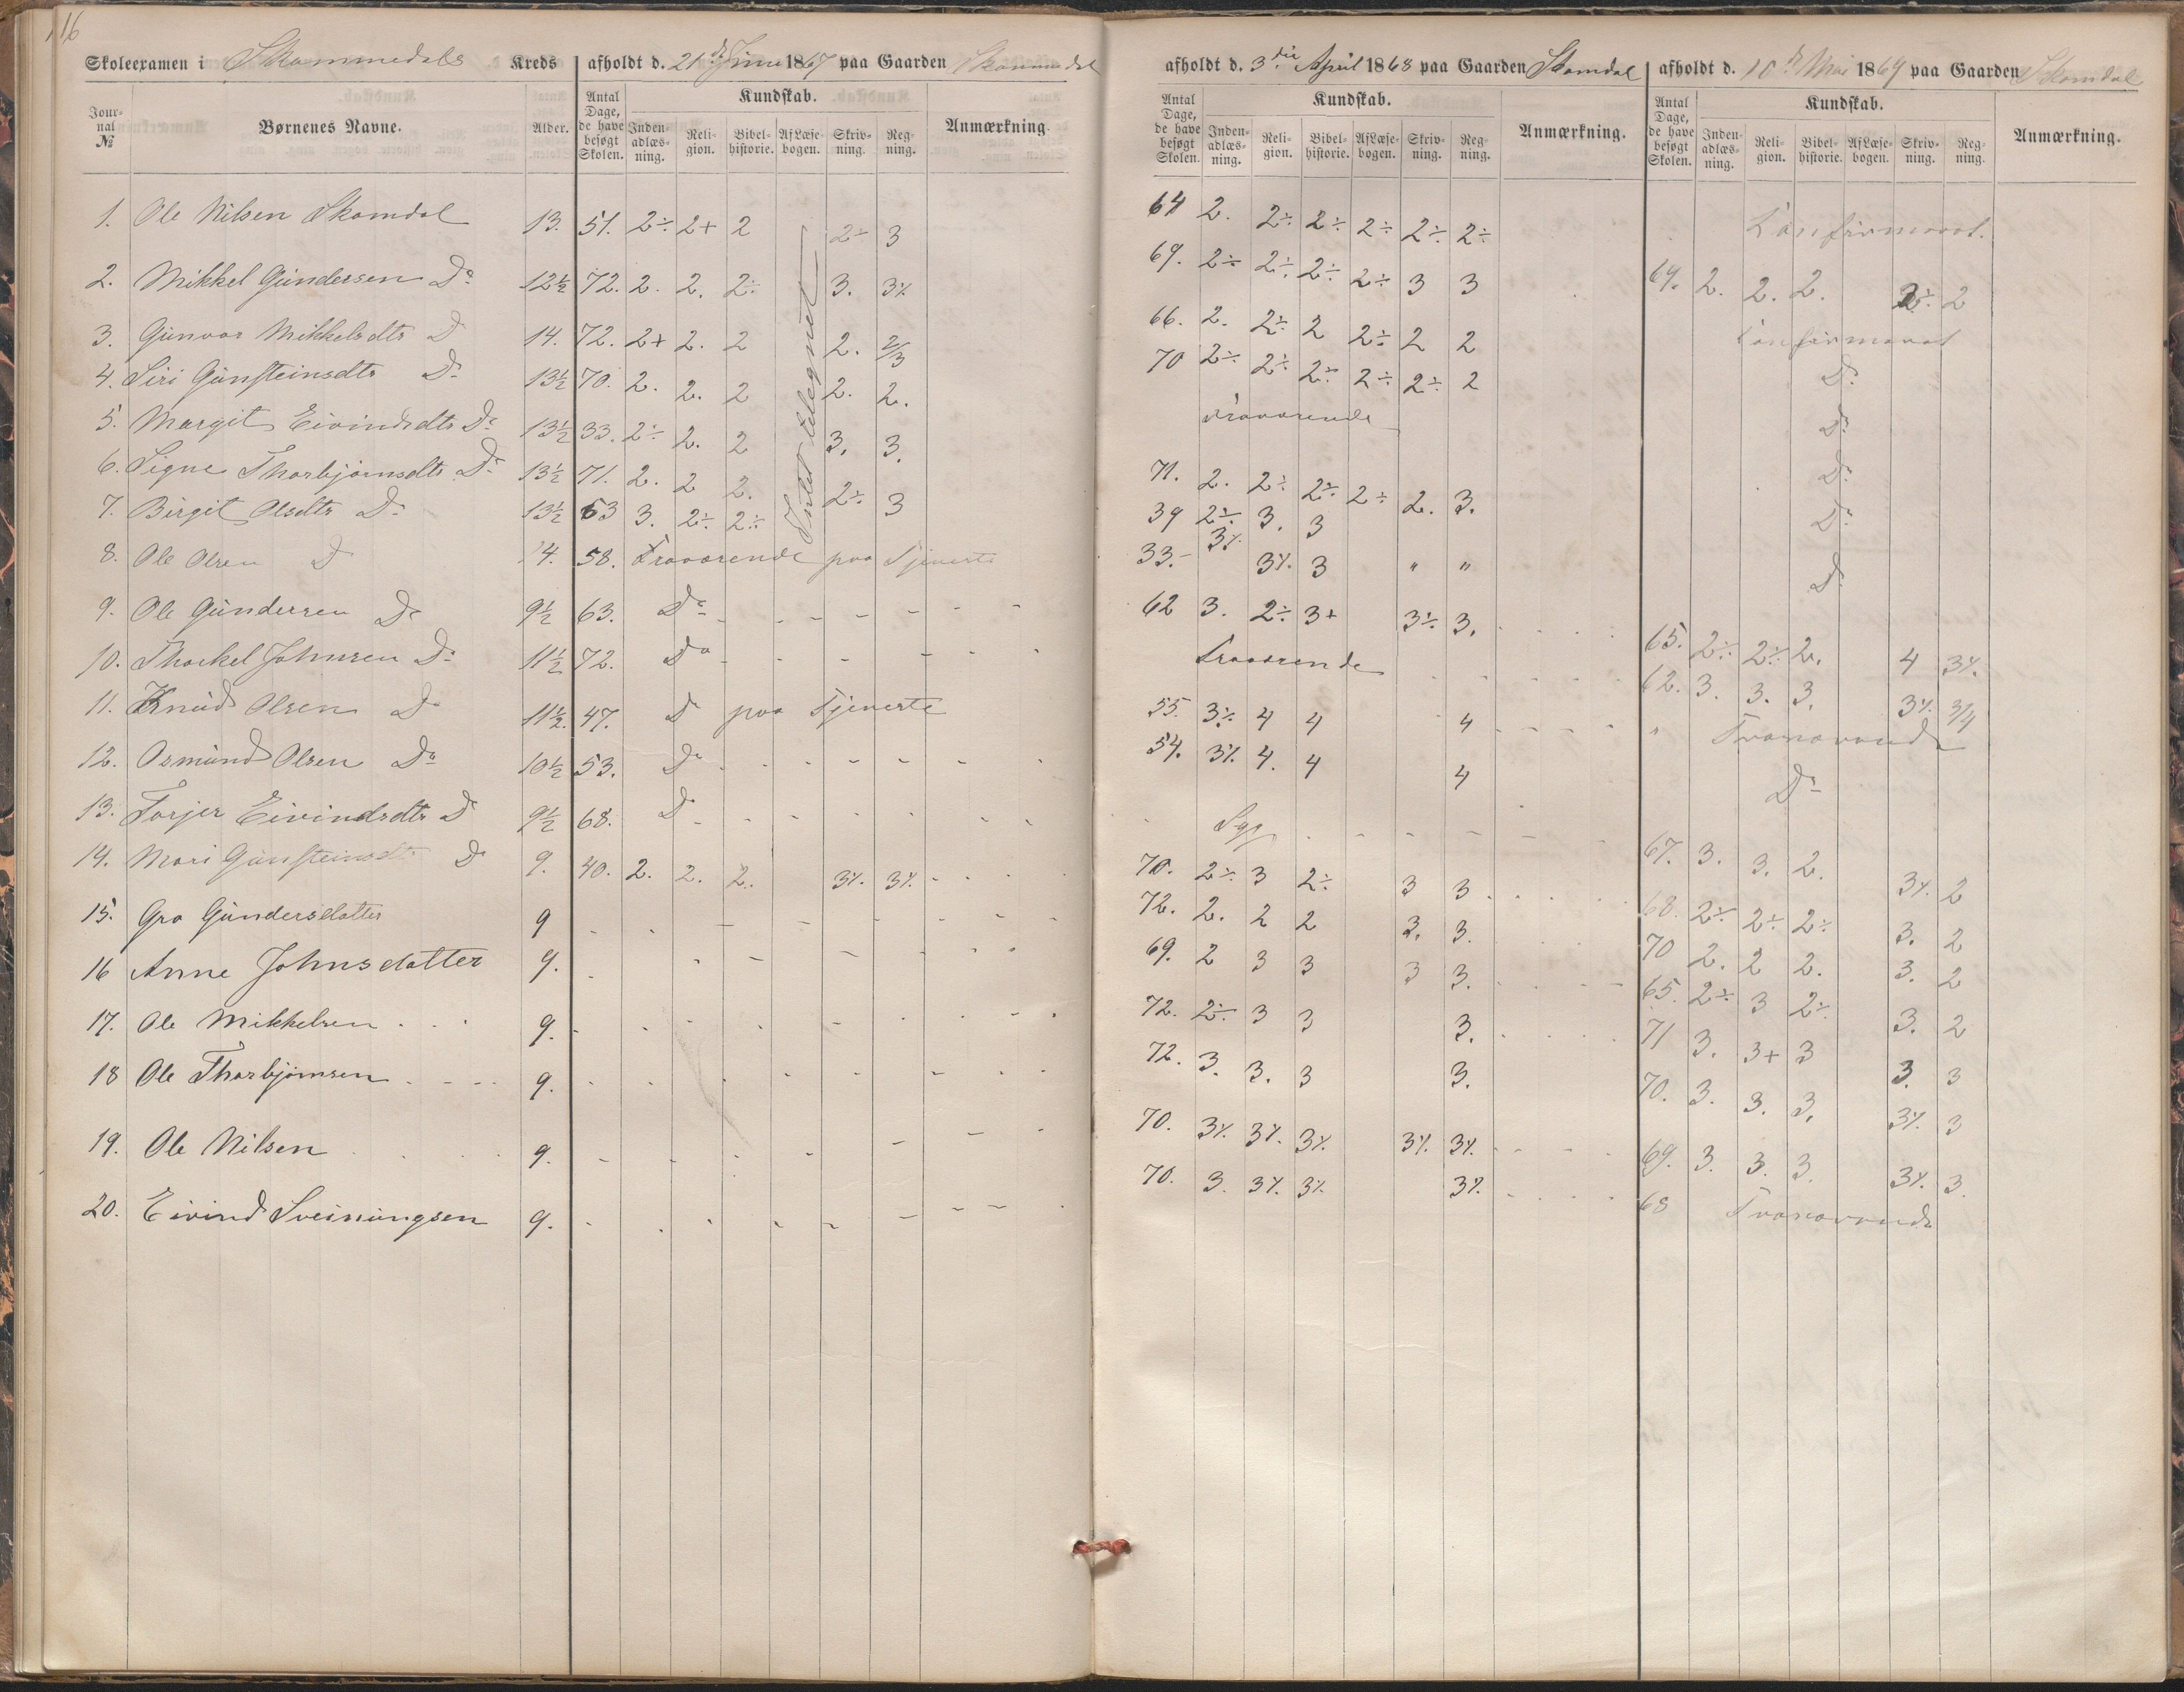 16
Skoleexamen i Skommedals Kreds afholdt d. 21de Juni 1867 paa Gaarden Skommedal
Jour-nal No Børnenes Navne. Alder. Antal Dage, de have besøgt Skolen. Kundskab. Inden-adlæs-ning. Reli-gion. Bibel-historie. Af Læse-bogen. Skriv-ning. Reg-ning. Anmærkning.
1. Ole Nilsen Skomdal 13. 51. 2÷ 2+ 2 2÷ 3
2. Mikkel Gundersen Do 12½ 72. 2. 2. 2÷ 3. 3⁒
3. Gunvor Mikkelsdtr D 14. 72. 2+ 2. 2 2. 2/3
4. Siri Gunsteinsdtr Do 13½ 70. 2. 2. 2 2. 2.
5. Margit Eivindsdtr Do 13½ 33. 2÷ 2. 2 3. 3.
6. Signe Thorbjørnsdtr Do 13½ 71. 2. 2 2. 2÷ 3
7. Birgit Olsdtr Do 13½ 63 3. 2÷ 2÷
Intet tilegnet
8. Ole Olsen D 14. 58. Fraværende paa Tjeneste
9. Ole Gundersen Do 9½ 63. Do
10. Thorkel Johnsen Do 11½ 72. Do
11. Knud Olsen Do 11½. 47. D paa Tjeneste
12. Osmund Olsen Do 10½ 53. Do
13. Torjer Eivindsdtr D 9½ 68. D
14. Mari Gunsteinsdtr D 9. 40. 2. 2. 2. 3⁒. 3⁒.
15. Gro Gundersdatter 9
16 Anne Johnsdatter 9.
17. Ole Mikkelsen 9.
18 Ole Thorbjørnsen 9.
19. Ole Nilsen 9.
20. Eivind Sveinungsen 9.
afholdt d. 3die April 1868 paa Gaarden Skomdal
Antal Dage, de have besøgt Skolen. Kundskab. Inden-adlæs-ning. Reli-gion. Bibel-historie. Af Læse-bogen. Skriv-ning. Reg-ning. Anmærkning.
64 2. 2÷ 2÷ 2÷ 2÷ 2÷
69. 2÷ 2÷ 2÷ 2÷ 3 3
66. 2. 2÷ 2 2÷ 2 2
70 2÷ 2÷ 2÷ 2÷ 2÷ 2
Fraværende
71. 2. 2÷ 2÷ 2÷ 2. 3.
39 2÷ 3. 3
33. 3⁒ 3⁒. 3 " "
62 3. 2÷ 3+ 3÷ 3.
Fraværende
55. 3⁒ 4 4 4
54. 3⁒ 4. 4 4
Syg
70. 2÷ 3 2÷ 3 3
72. 2. 2 2 3. 3.
69. 2 3 3 3 3.
72. 2÷ 3 3 3.
72. 3. 3. 3 3.
70. 3⁒. 3⁒. 3⁒. 3⁒. 3⁒.
70. 3. 3⁒. 3⁒. 3⁒.
afholdt d. 10de Mai 1869 paa Gaarden Skomdal
Antal Dage, de have besøgt Skolen. Kundskab. Inden-adlæs-ning. Reli-gion. Bibel-historie. Af Læse-bogen. Skriv-ning. Reg-ning. Anmærkning.
Konfirmeret.
69. 2. 2. 2. 2÷ 2
Konfirmeret
Do
Do
Do
Do
D
65. 2÷ 2÷ 2. 4 3⁒.
62. 3. 3. 3. 3⁒. 3/4
" Fraværende
Do
67. 3. 3. 2. 3⁒. 2
68. 2÷ 2÷ 2÷ 3. 2
70 2. 2 2. 3. 2
65. 2÷ 3 2÷ 3. 2
71 3. 3+ 3 3. 3
70. 3. 3. 3. 3⁒. 3
69. 3. 3. 3. 3⁒. 3.
68 Fraværende